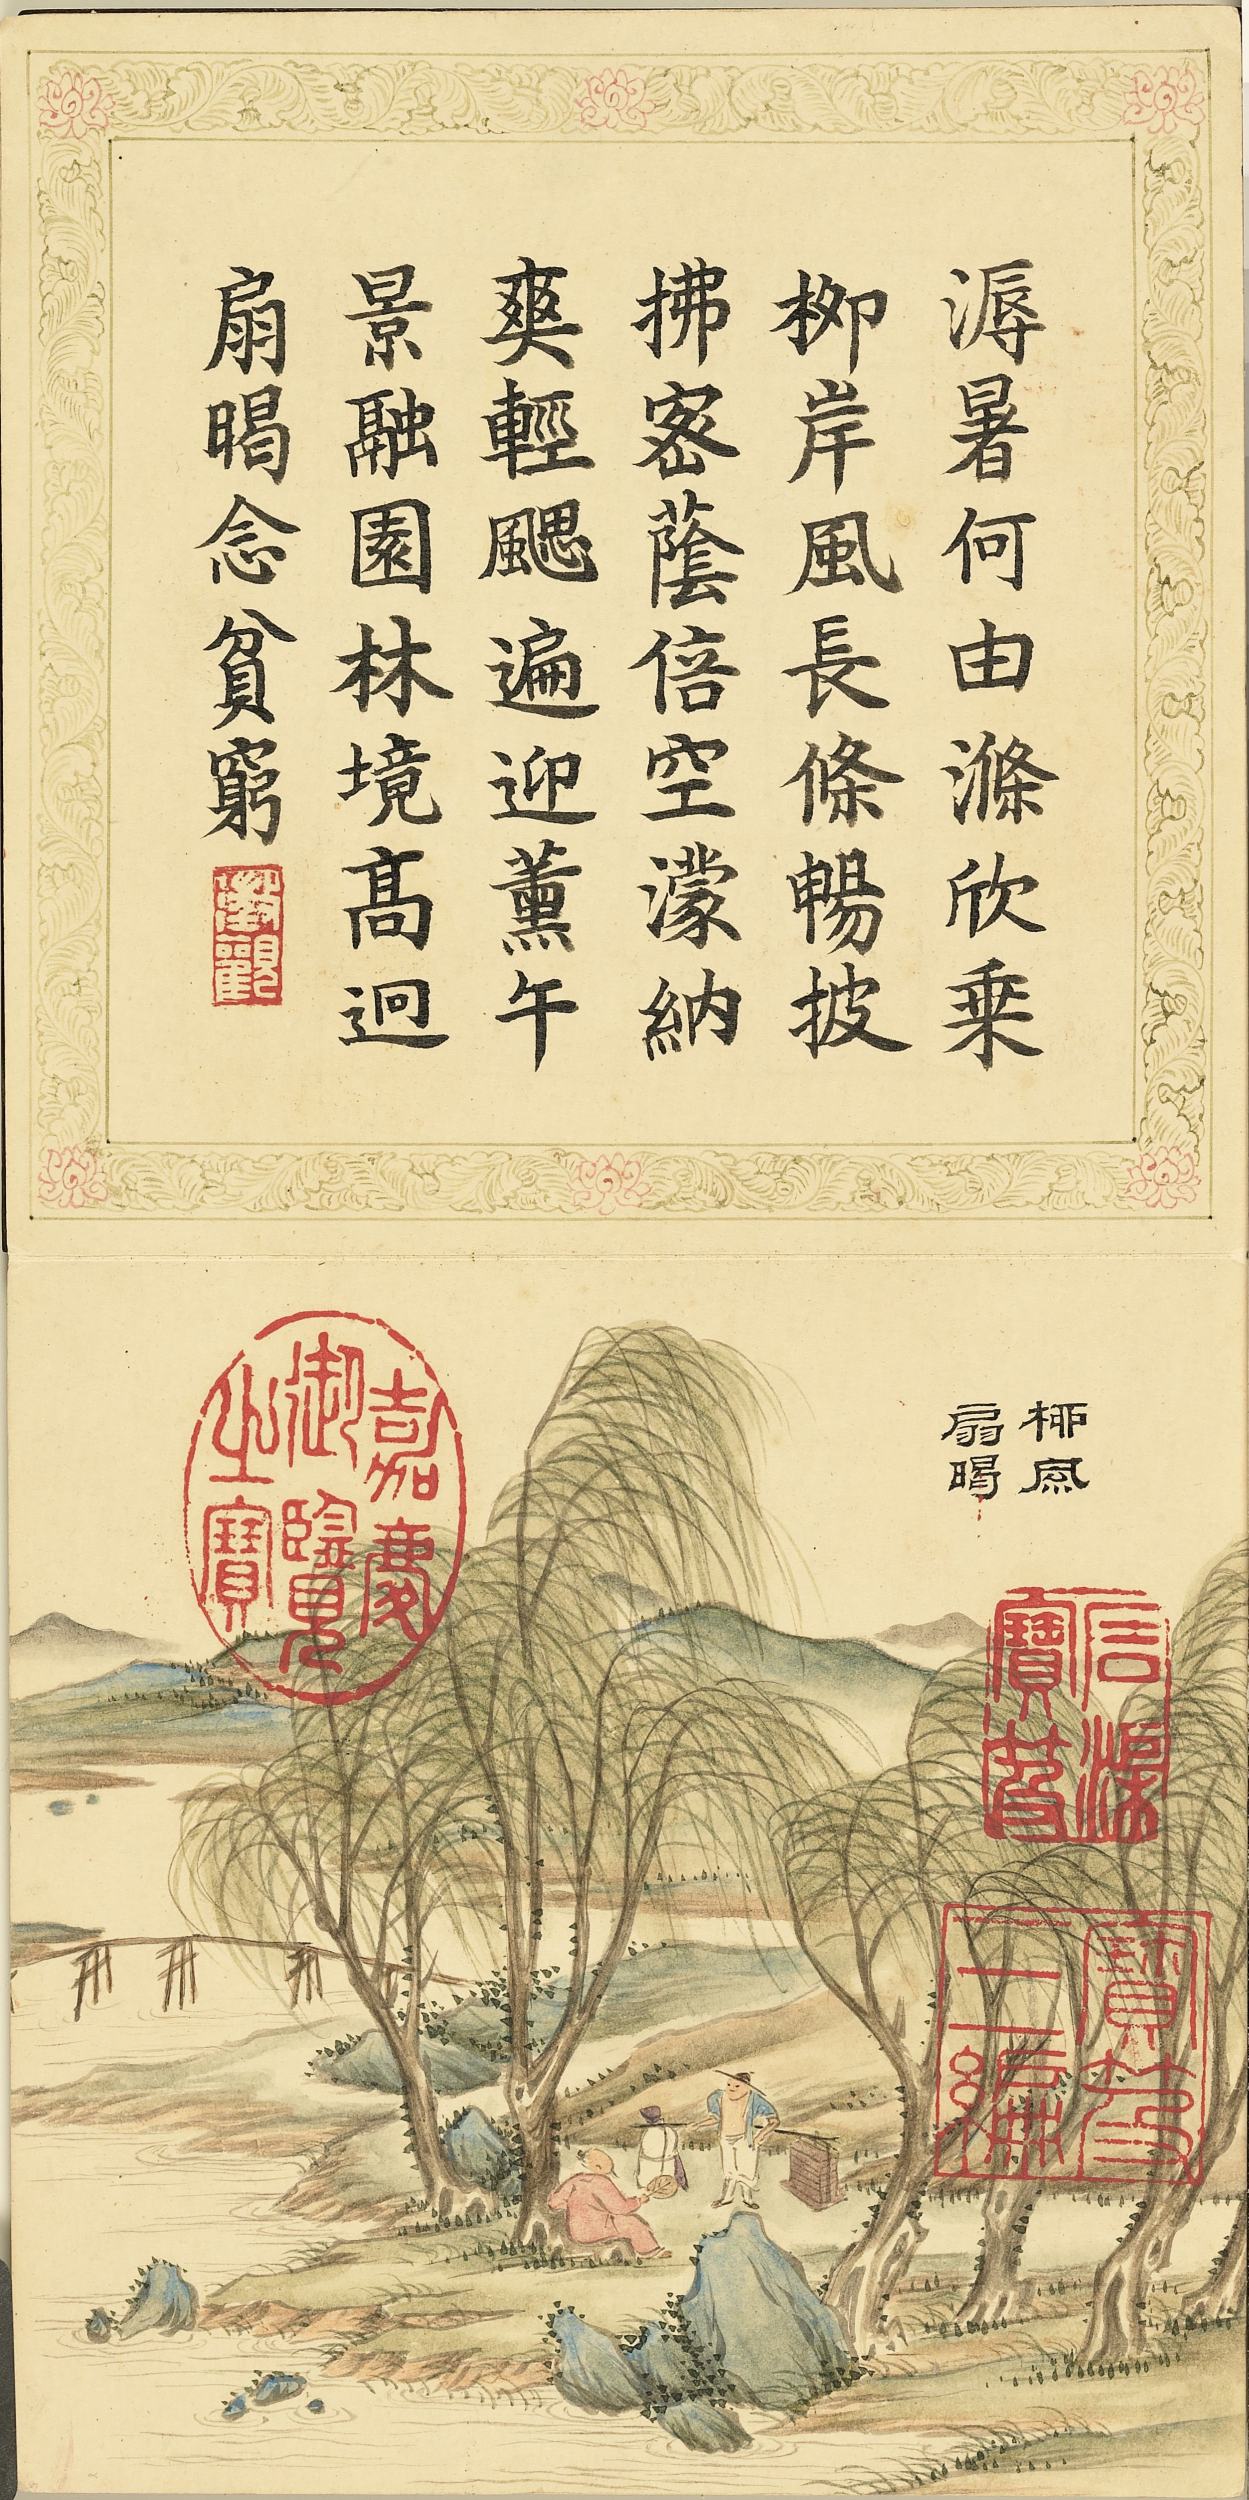 溽暑何由滌欣乗
柳岸風長條暢披
拂密蔭倍空濛納
爽輕颸遍迎薰午
景融園林境髙迥
扇暍念貧窮
柳風
扇暍
嘉慶
御覽
之寶
寶笈
三編